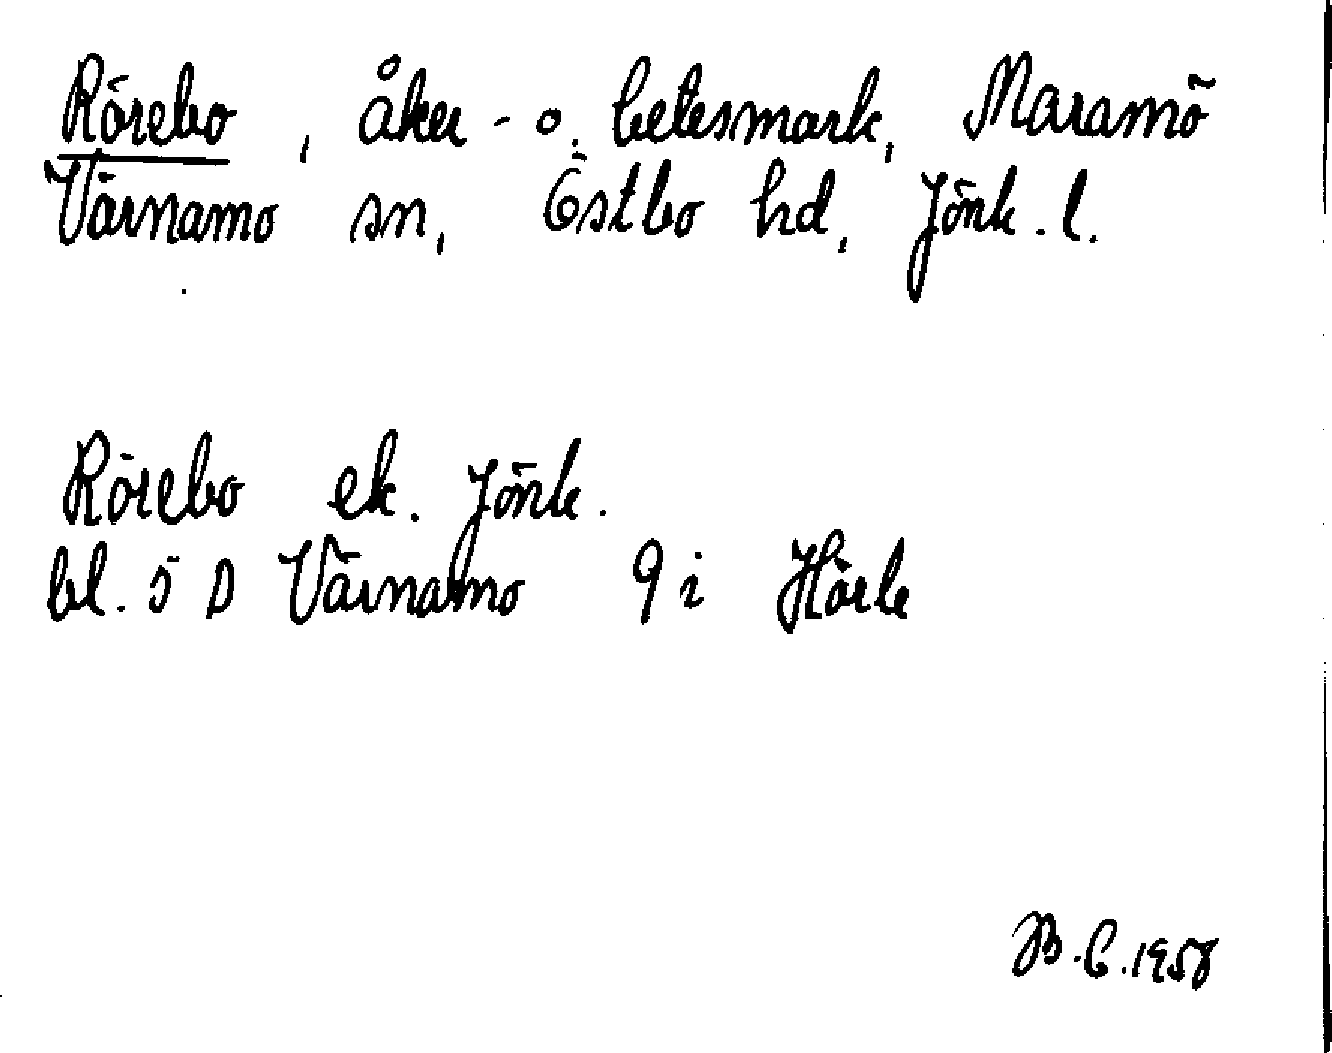 Rörebo, åker- o. betesmark, Maramö
Värnamo sn, Östbo hd, Jönk. l.
Rörebo ek. Jönk.
bl. 5 D Värnamo 9 i Hörle
B. C. 1958